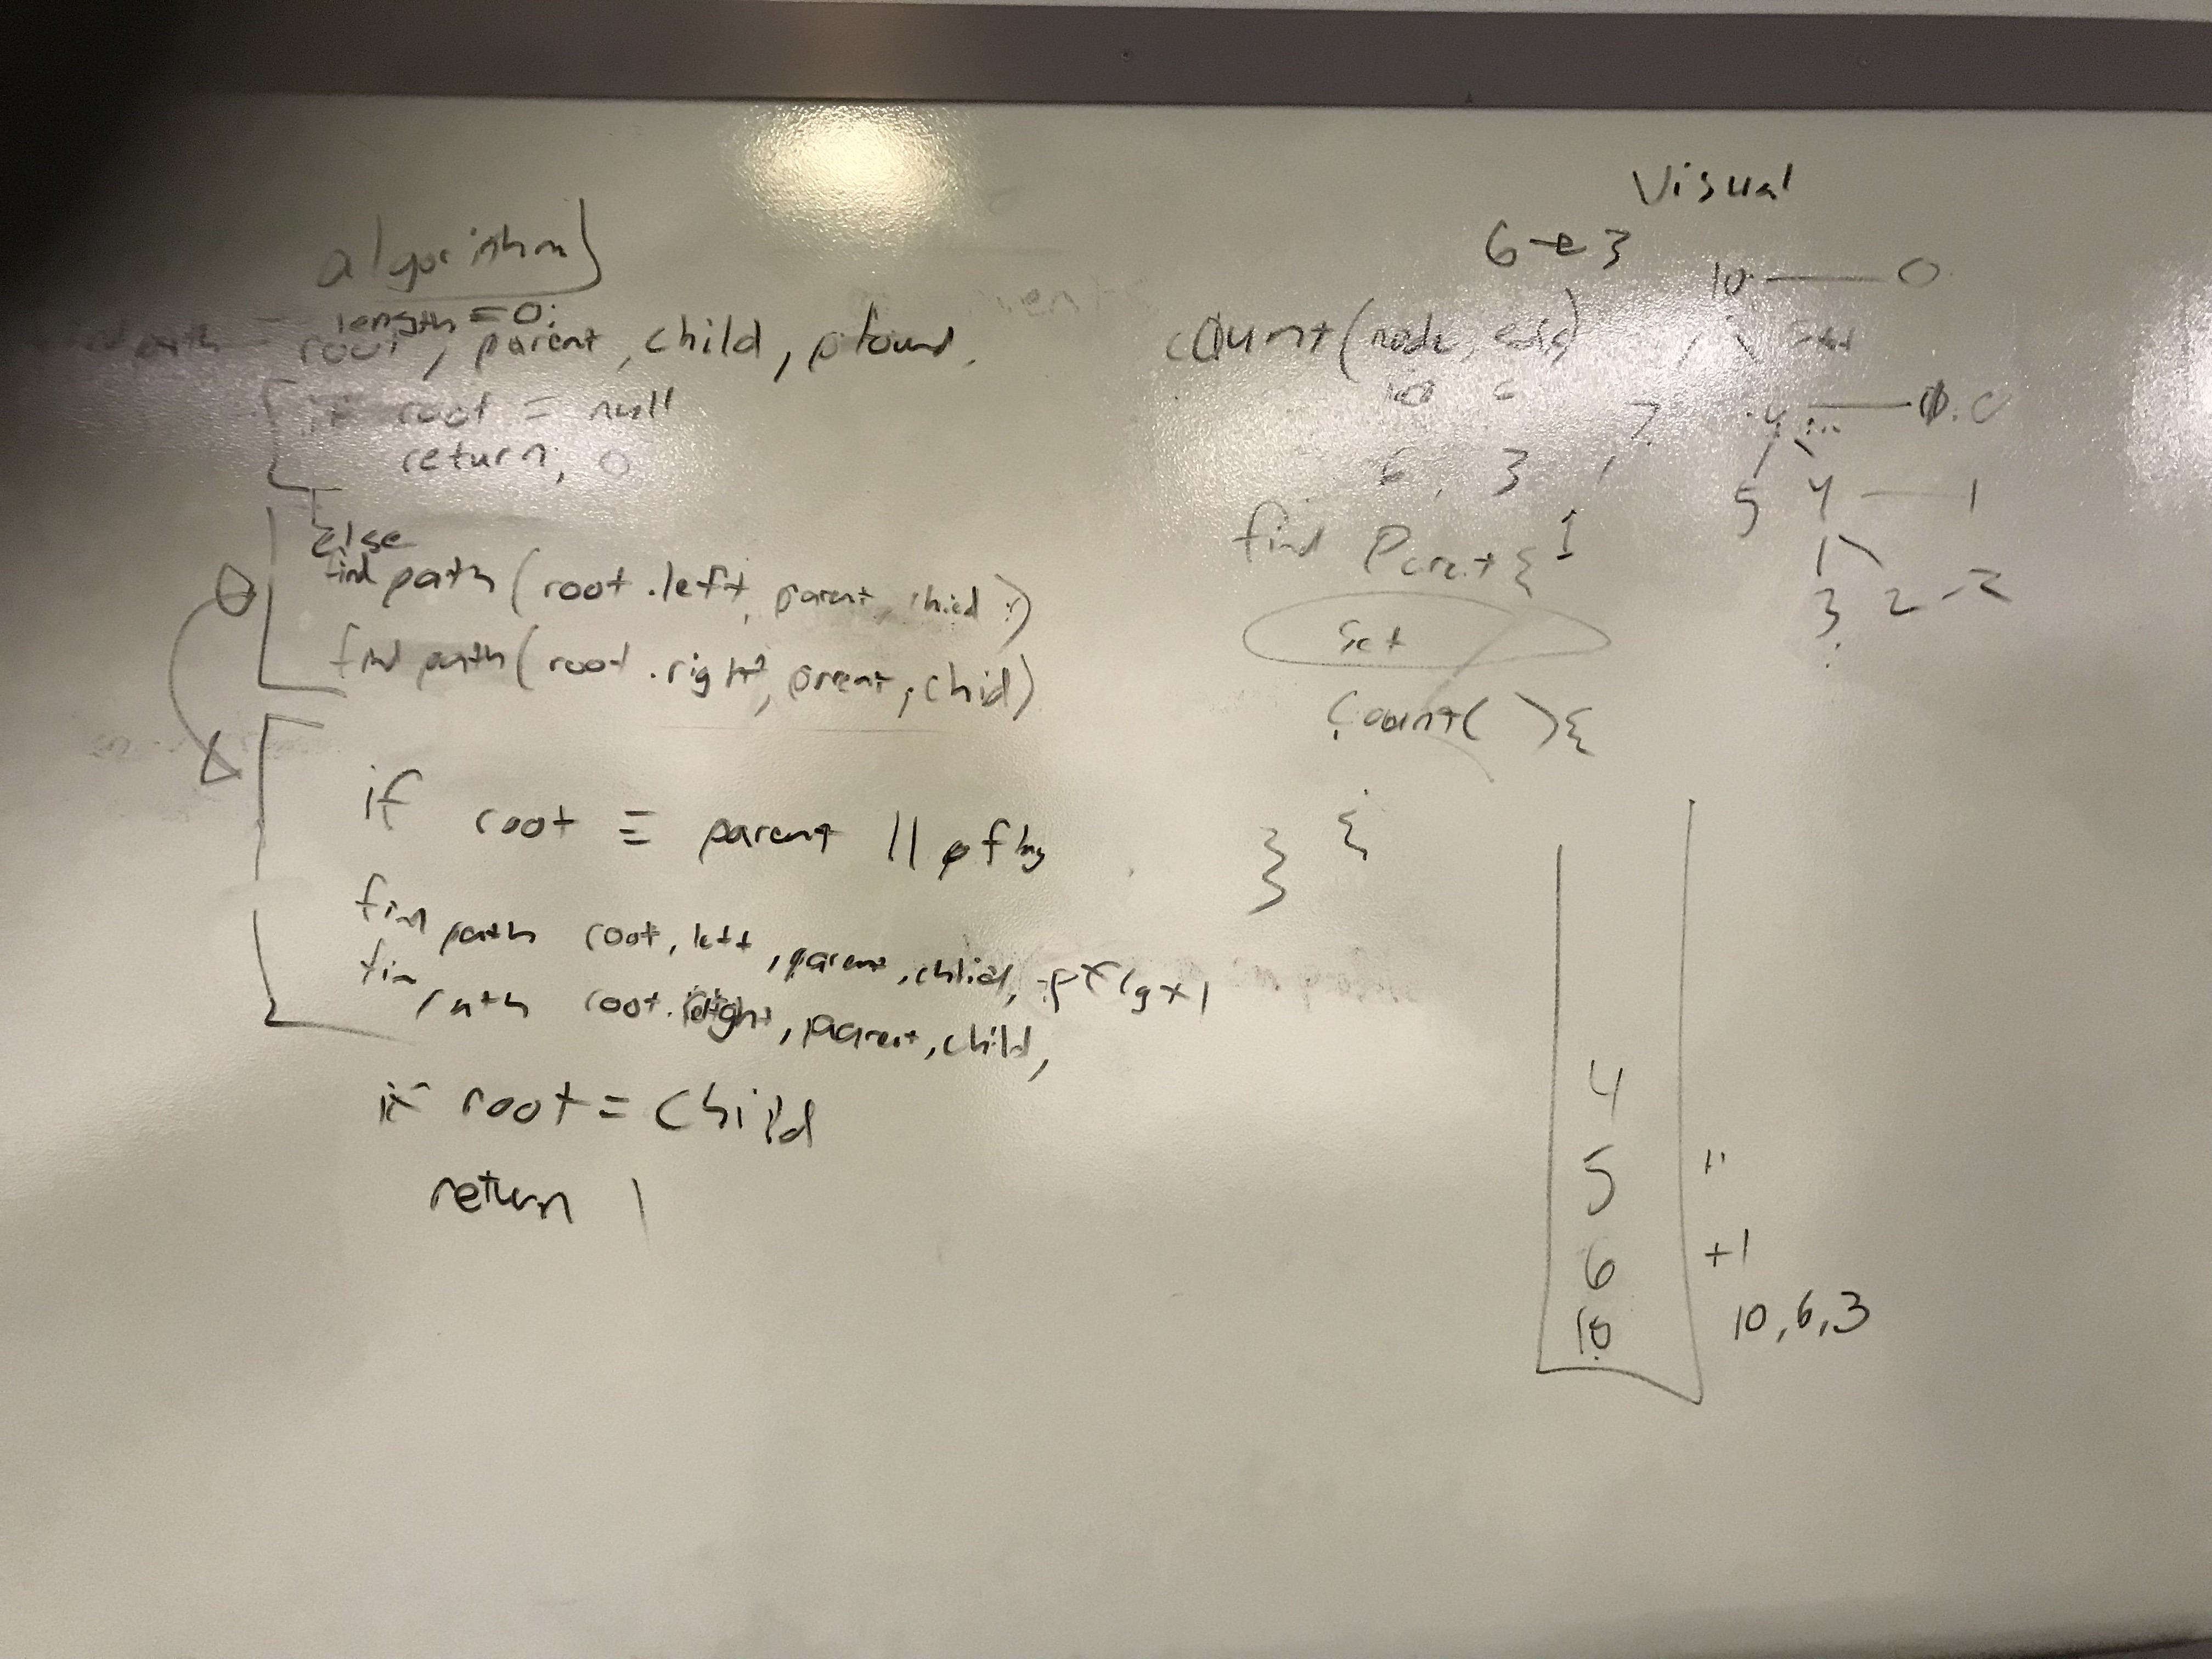 algorithm
length = 0;
path root, parent, child, pfound,
if root = null
return; 0
else
find path (root.left, parent, child)
find path (root.right, parent, chid)
if root = parent || pflag
find path root, left, parent, chlid,
path root.right, parent, child,
if root = child
return 1
Visual
6 → 3
10 0
count(node, edg)
10 6
6, 3, 7
0
5 4 1
find Parent { 1
3 2 - 2
Set
Count( ) {
{
}
4
5 "
6 +1
10 10, 6, 3